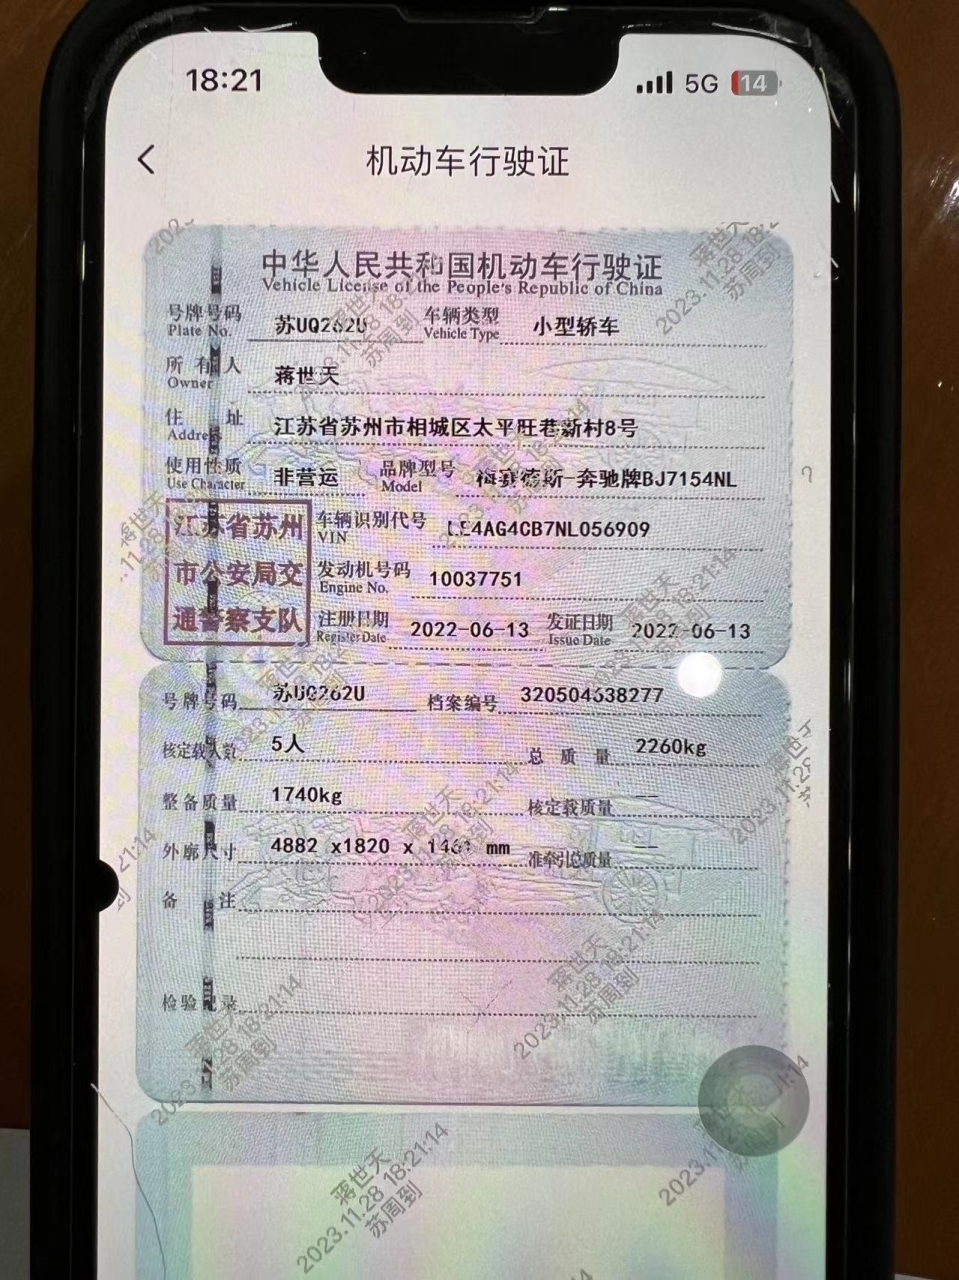 18:21
5G
14
机动车行驶证
中华人民共和国机动车行驶证
Vehicle License of the People's Republic of China
号牌号码 苏UQ262U 车辆类型 小型轿车
Plate No. Vehicle Type
所有人 蒋世天
Owner
住址 江苏省苏州市相城区太平旺巷新村8号
Address
使用性质 非营运 品牌型号 梅赛德斯-奔驰牌BJ7154NL
Use Character Model
江苏省苏州
市公安局交
通警察支队
车辆识别代号 LE4AG4CB7NL056909
VIN
发动机号码 10037751
Engine No.
注册日期 2022-06-13 发证日期 2022-06-13
Register Date Issue Date
号牌号码 苏UQ262U 档案编号 320504638277
核定载人数 5人 总质量 2260kg
整备质量 1740kg 核定载质量 --
外廓尺寸 4882 x1820 x mm 准牵引总质量 --
备注
检验记录
蒋世天
2023.11.28 18:21:14
苏周到